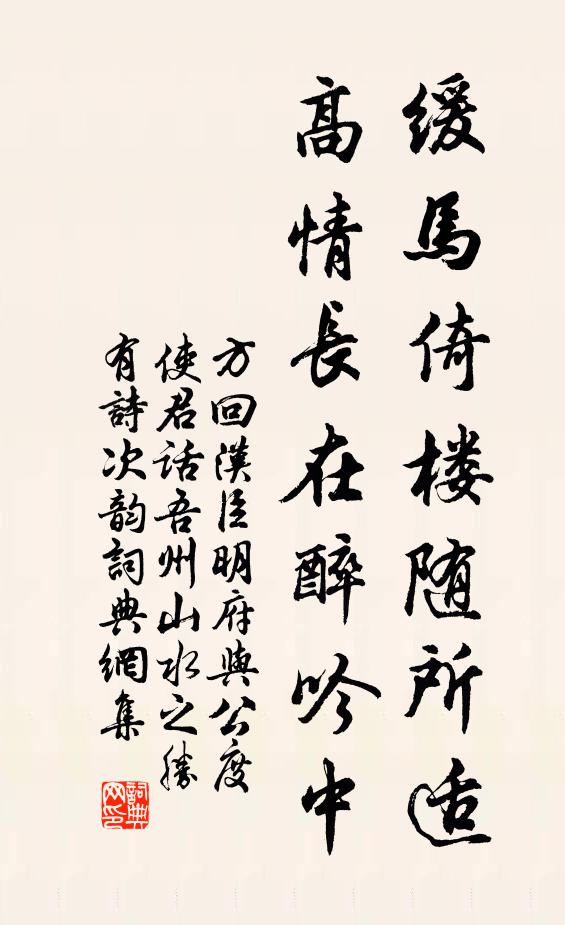 緩馬倚楼随所适
高情長在醉吟中
方回漢臣明府與公度
使君話吾州山水之勝
有詩次韵詞典網集
詞典
网印